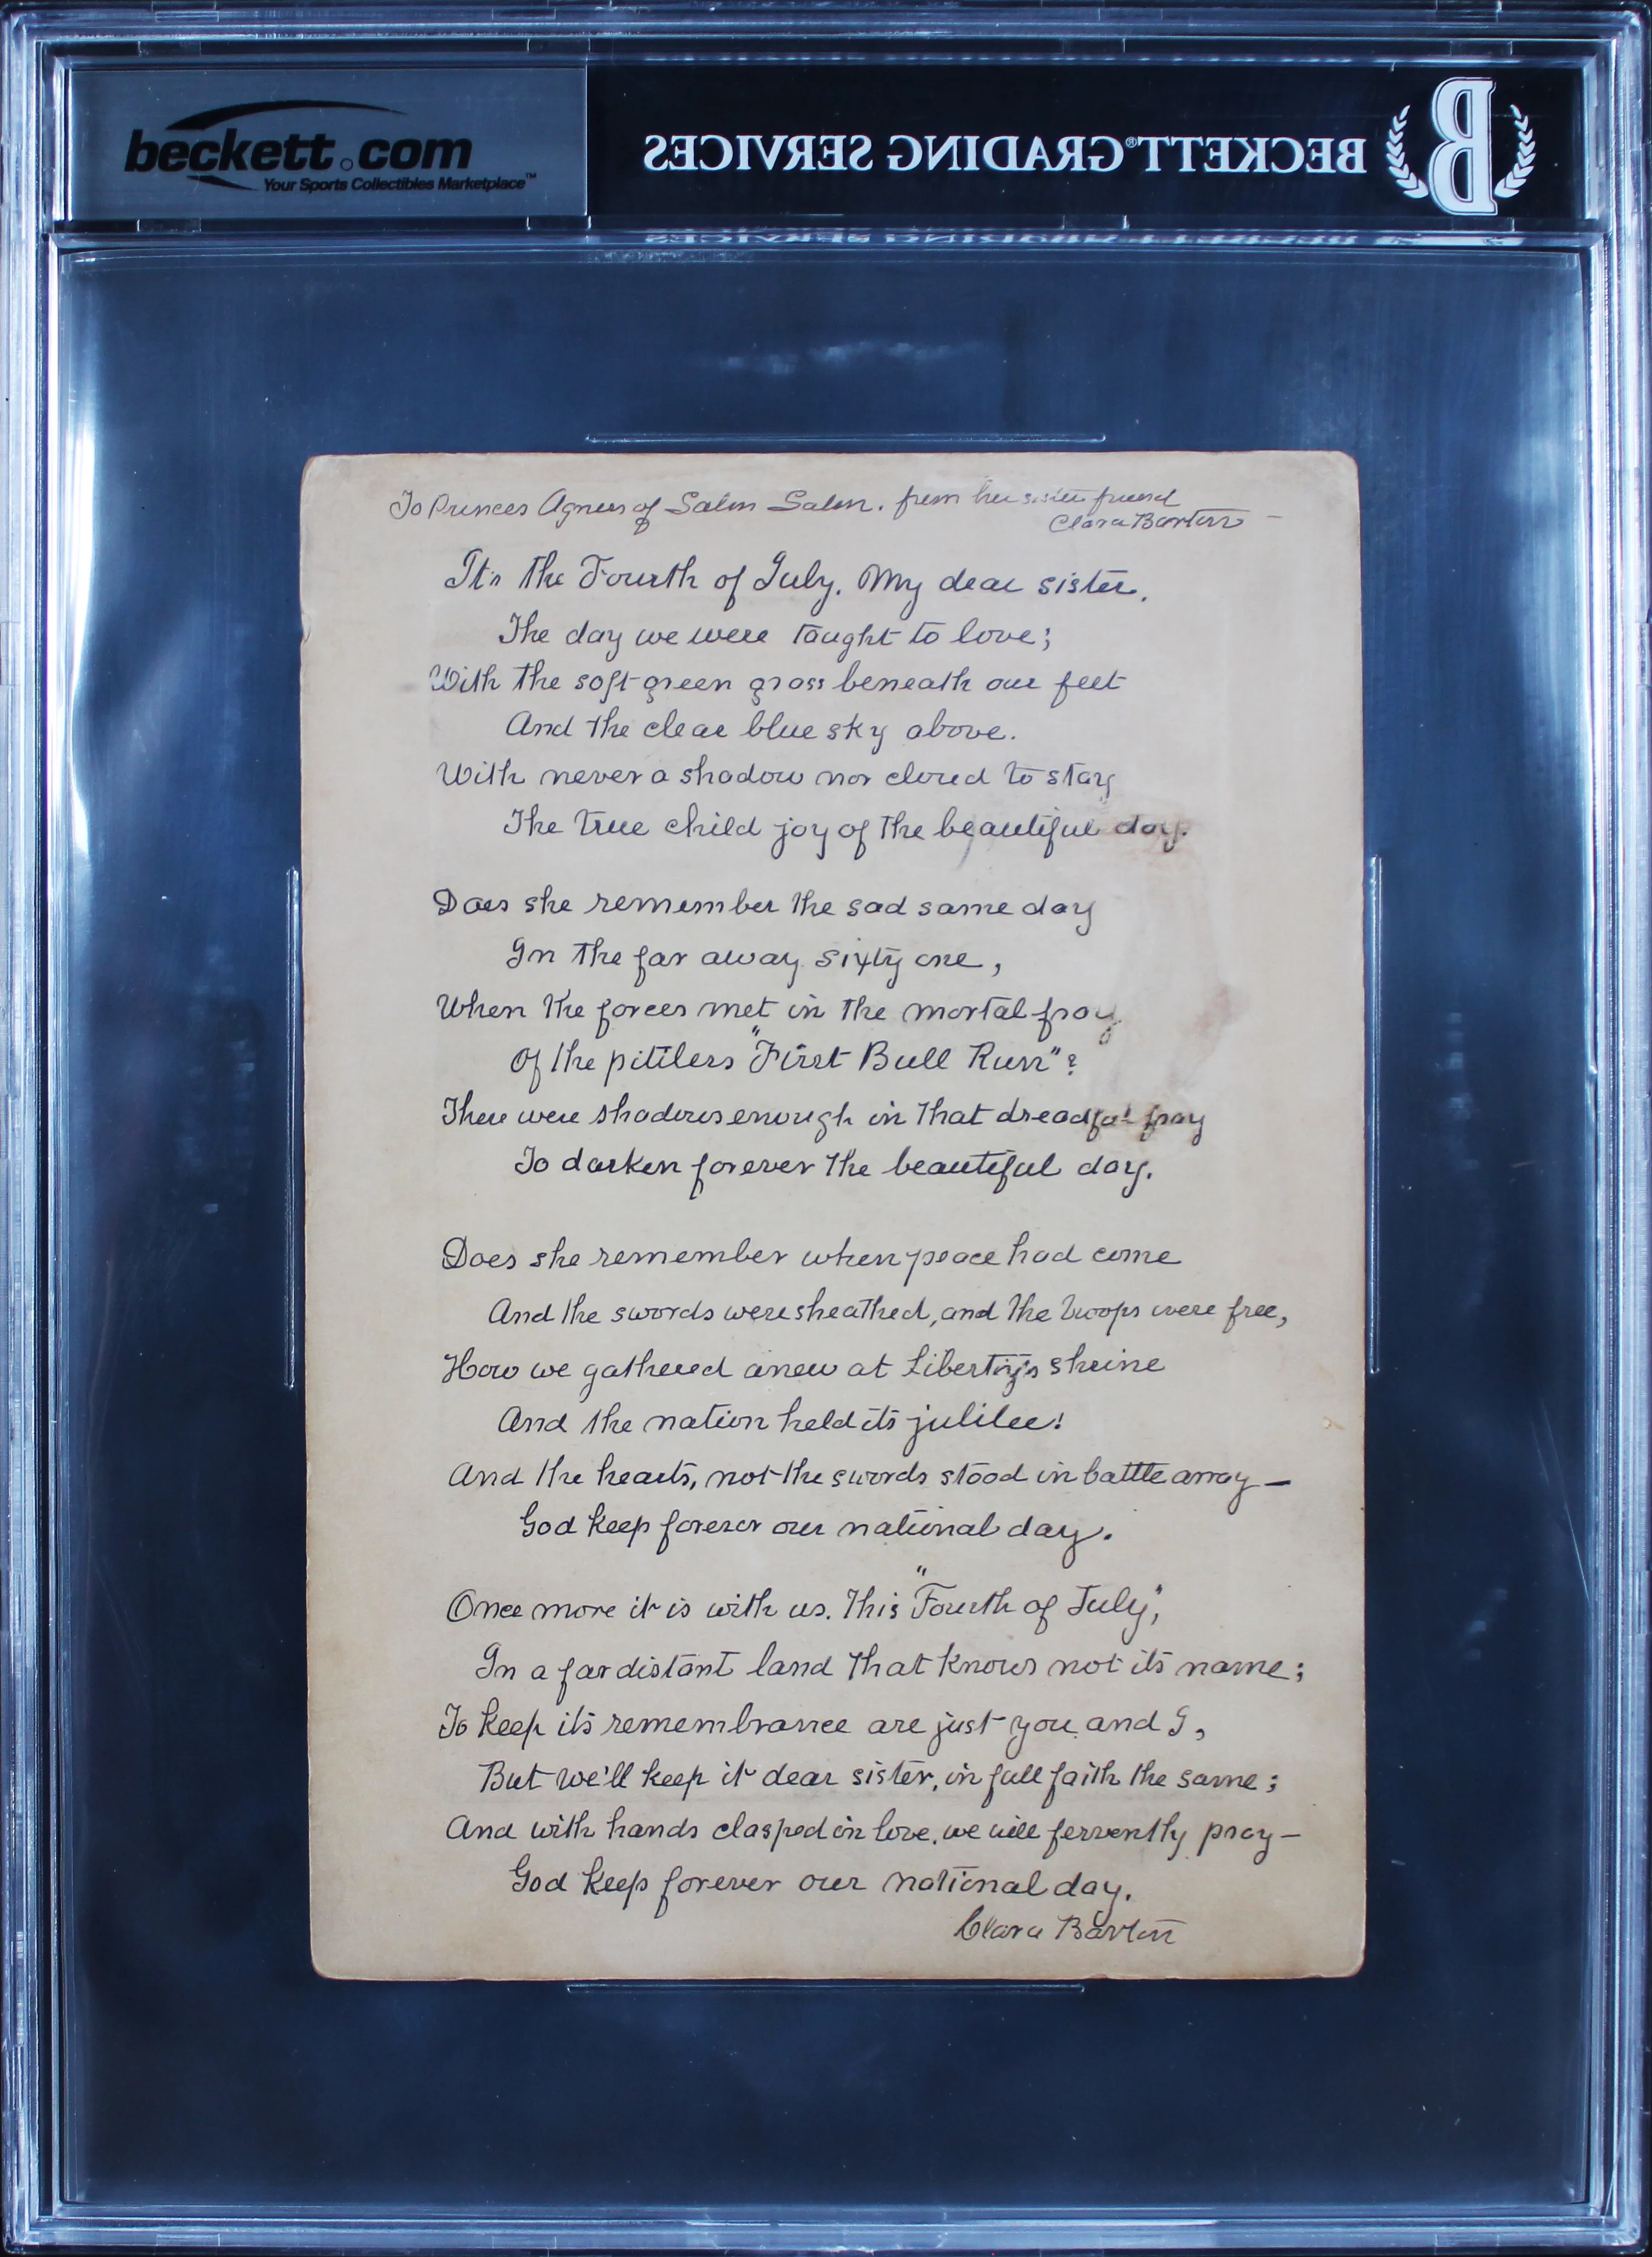 beckett.com
Your Sports Collectibles Marketplace™
BECKETT® GRADING SERVICES
B
To Princes Agnes of Salm Salm. from her sister friend
Clara Barton –
It's the Fourth of July. My dear sister.
The day we were taught to love;
With the soft green grass beneath our feet
And the clear blue sky above.
With never a shadow nor cloud to stay
The true child joy of the beautiful day.
Does she remember the sad same day
In the far away sixty one,
When the forces met in the mortal fray
Of the pitiless "First Bull Run"?
There were shadows enough in that dreadful fray
To darken forever the beautiful day.
Does she remember when peace had come
And the swords were sheathed, and the troops were free,
How we gathered anew at Liberty's shrine
And the nation held its julilee!
And the hearts, not the swords stood in battle array –
God keep forever our national day.
Once more it is with us. This "Fourth of July",
In a far distant land that knows not its name;
To keep its remembrance are just you and I,
But we'll keep it dear sister, in full faith the same;
And with hands clasped in love, we will fervently pray –
God keep forever our national day.
Clara Barton